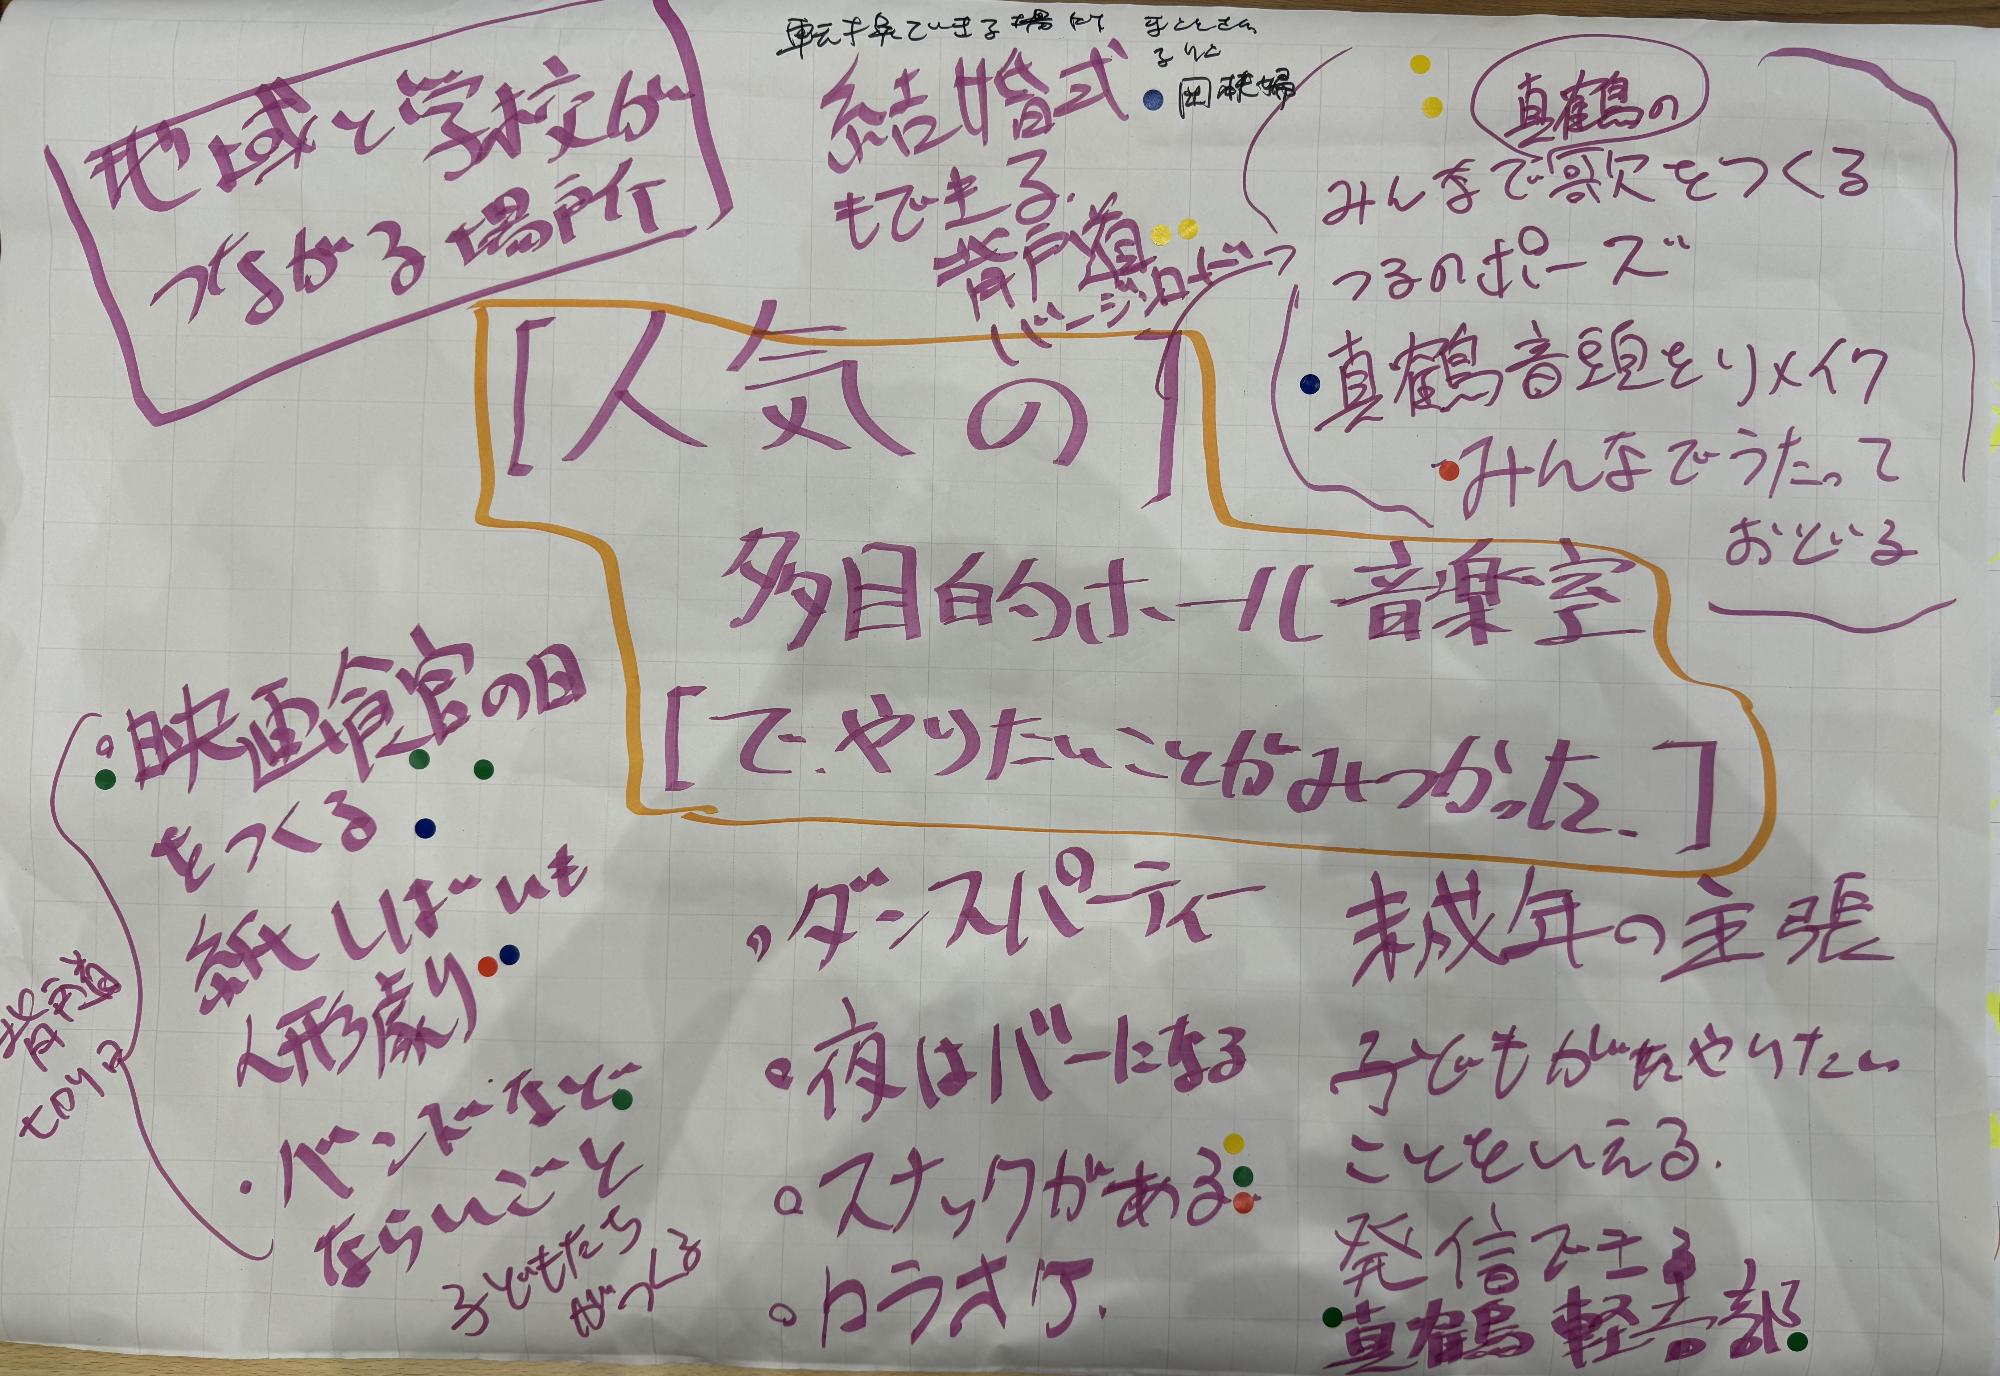 地域と学校が
つながる場所
まことさん
結婚式
もできる.
背戸道
バージンロード
真鶴の
みんなで歌をつくる
つるのポーズ
真鶴音頭をリメイク
みんなでうたって
おどる
[人気の]
多目的ホール音楽室
[で.やりたいことがみつかった.]
映画館の日
をつくる
紙しばいも
人形劇り
背戸道
セロリ
・バンドなど
ならいごと
子どもたち
がつくる
ダンスパーティー
夜はバーになる
スナックがある
カラオケ.
未成年の主張
子どもがやりたい
ことをいえる.
発信できる
真鶴軽音部